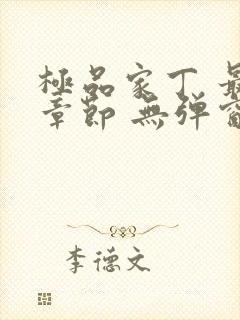 極品家丁 最
章節 無彈窗
李德文